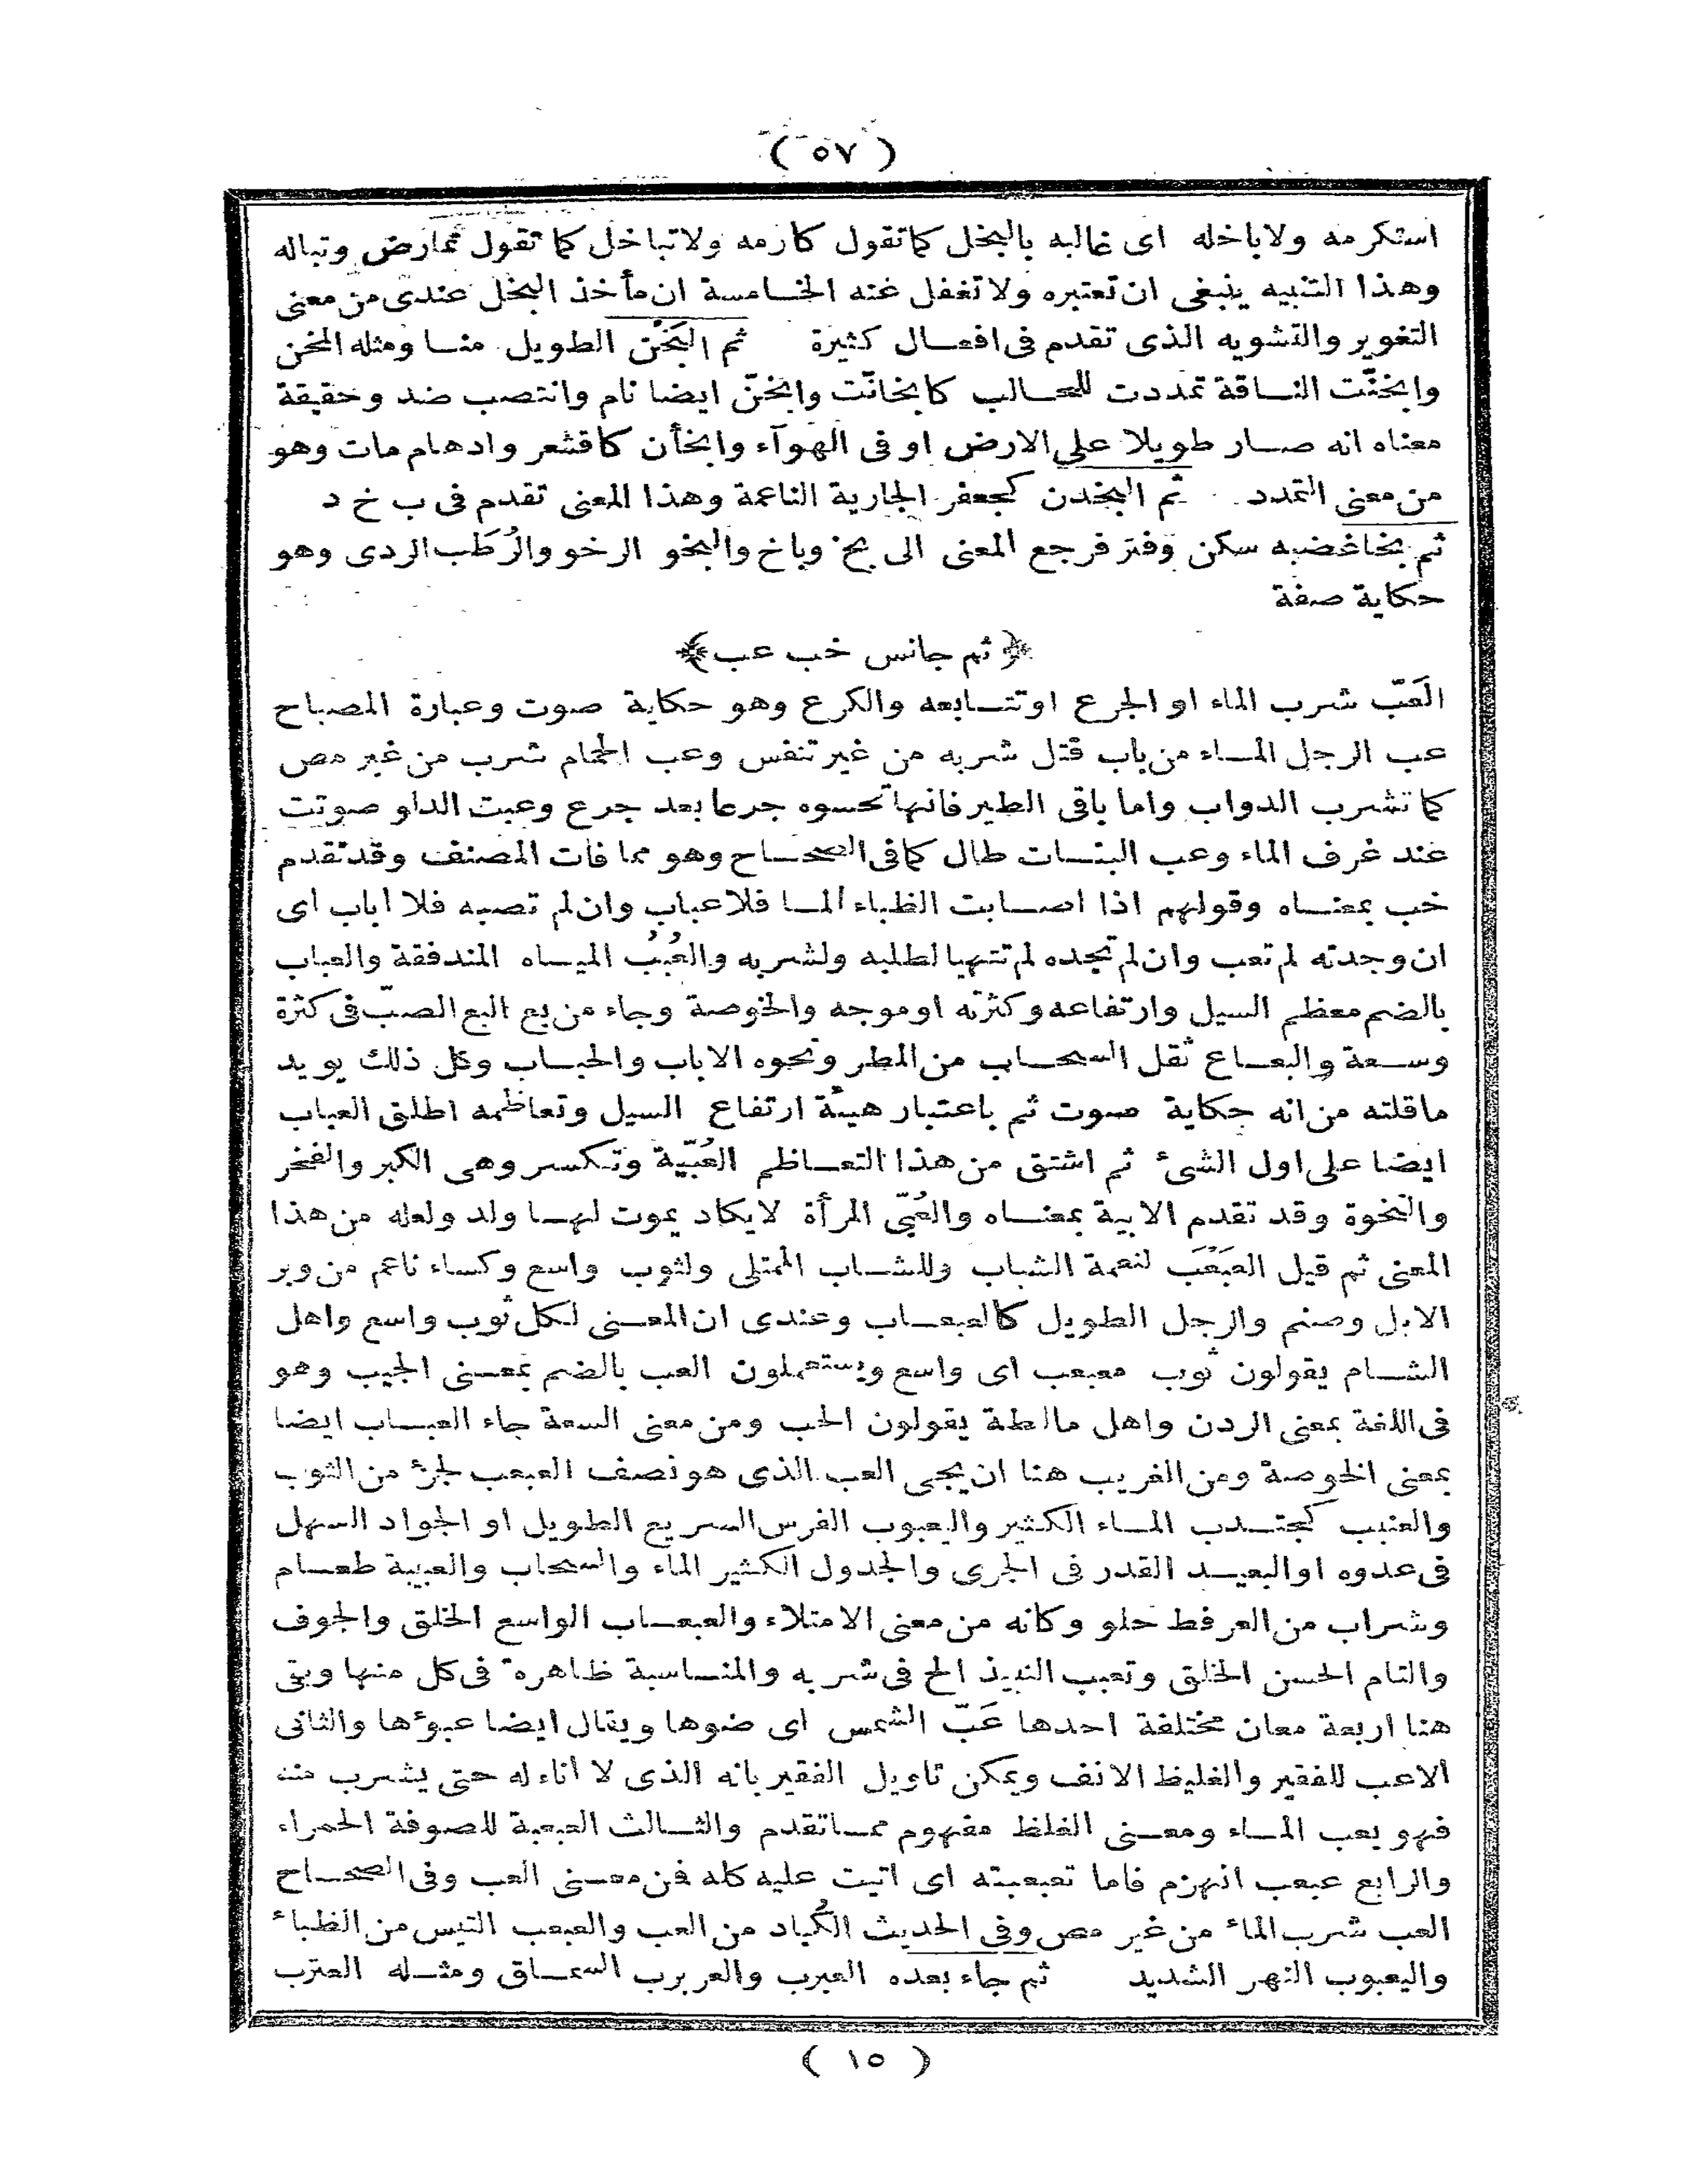 ( ٥٧ )
استكرمه ولا باخله اى غالبه بالبخل كما تقول كارمه ولا تباخل كما تقول تمارض وتباله
وهذا التنبيه ينبغى ان تعتبره ولا تغفل عنه الخامسة ان مأخذ البخل عندى من معنى
التغوير والتشويه الذى تقدم فى افعال كثيرة ثم البَخْن الطويل منا ومثله المخن
وابخنّت الناقة تمددت للحالب كابخانّت وابخنّ ايضا نام وانتصب ضد وحقيقة
معناه انه صار طويلا على الارض او فى الهوآء وابخأن كاقشعر وادهام مات وهو
من معنى التمدد ثم البخدن كجعفر الجارية الناعمة وهذا المعنى تقدم فى ب خ د
ثم بخا غضبه سكن وفتر فرجع المعنى الى بخ وباخ والبخو الرخو والرُطَب الردى وهو
حكاية صفة
﴿ ثم جانس خب عب ﴾
العَبّ شرب الماء او الجرع او تتابعه والكرع وهو حكاية صوت وعبارة المصباح
عب الرجل الماء من باب قتل شربه من غير تنفس وعب الحمام شرب من غير مص
كما تشرب الدواب واما باقى الطير فانها تحسوه جرعا بعد جرع وعبت الدلو صوتت
عند غرف الماء وعب النبات طال كما فى الصحاح وهو مما فات المصنف وقد تقدم
خب بمعناه وقولهم اذا اصابت الظباء الما فلا عباب وان لم تصبه فلا اباب اى
ان وجدته لم تعب وان لم تجده لم تتهيا لطلبه ولشربه والعُبُب المياه المندفقة والعباب
بالضم معظم السيل وارتفاعه وكثرته او موجه والخوصة وجاء من بع البع الصبّ فى كثرة
وسعة والبعاع ثقل السحاب من المطر ونحوه الاباب والحباب وكل ذلك يويد
ما قلته من انه حكاية صوت ثم باعتبار هيئة ارتفاع السيل وتعاظمه اطلق العباب
ايضا على اول الشئ ثم اشتق من هذا التعاظم العُبّيّة وتكسر وهى الكبر والفخر
والنخوة وقد تقدم الابية بمعناه والعُبّى المرأة لا يكاد يموت لها ولد ولعله من هذا
المعنى ثم قيل العَبْعَب لنعمة الشباب وللشاب الممتلى ولثوب واسع وكساء ناعم من وبر
الابل وصنم والرجل الطويل كالعبعاب وعندى ان المعنى لكل ثوب واسع واهل
الشام يقولون ثوب معبعب اى واسع ويستعملون العب بالضم بمعنى الجيب وهو
فى اللغة بمعنى الردن واهل مالطة يقولون الحب ومن معنى السعة جاء العباب ايضا
بمعنى الخوصة ومن الغريب هنا ان يجى العب الذى هو نصف العبعب لجزء من الثوب
والعنبب كجندب الماء الكثير واليعبوب الفرس السريع الطويل او الجواد السهل
فى عدوه او البعيد القدر فى الجرى والجدول الكثير الماء والسحاب والعبيبة طعام
وشراب من العرفط حلو وكانه من معنى الامتلاء والعبعاب الواسع الخلق والجوف
والتام الحسن الخلق وتعبب النبيذ الح فى شربه والمناسبة ظاهرة فى كل منها وبقى
هنا اربعة معان مختلفة احدها عَبّ الشمس اى ضوها ويقال ايضا عبوءها والثانى
الاعب للفقير والغليظ الانف ويمكن تاويل الفقير بانه الذى لا اناء له حتى يشرب منه
فهو يعب الماء ومعنى الغلظ مفهوم مما تقدم والثالث العبعبة للصوفة الحمراء
والرابع عبعب انهزم فاما تعبعبته اى اتيت عليه كله فمن معنى العب وفى الصحاح
العب شرب الماء من غير مص وفى الحديث الكُباد من العب والعبعب التيس من الظباء
واليعبوب النهر الشديد ثم جاء بعده العبرب والعربرب السماق ومثله العترب
( ١٥ )